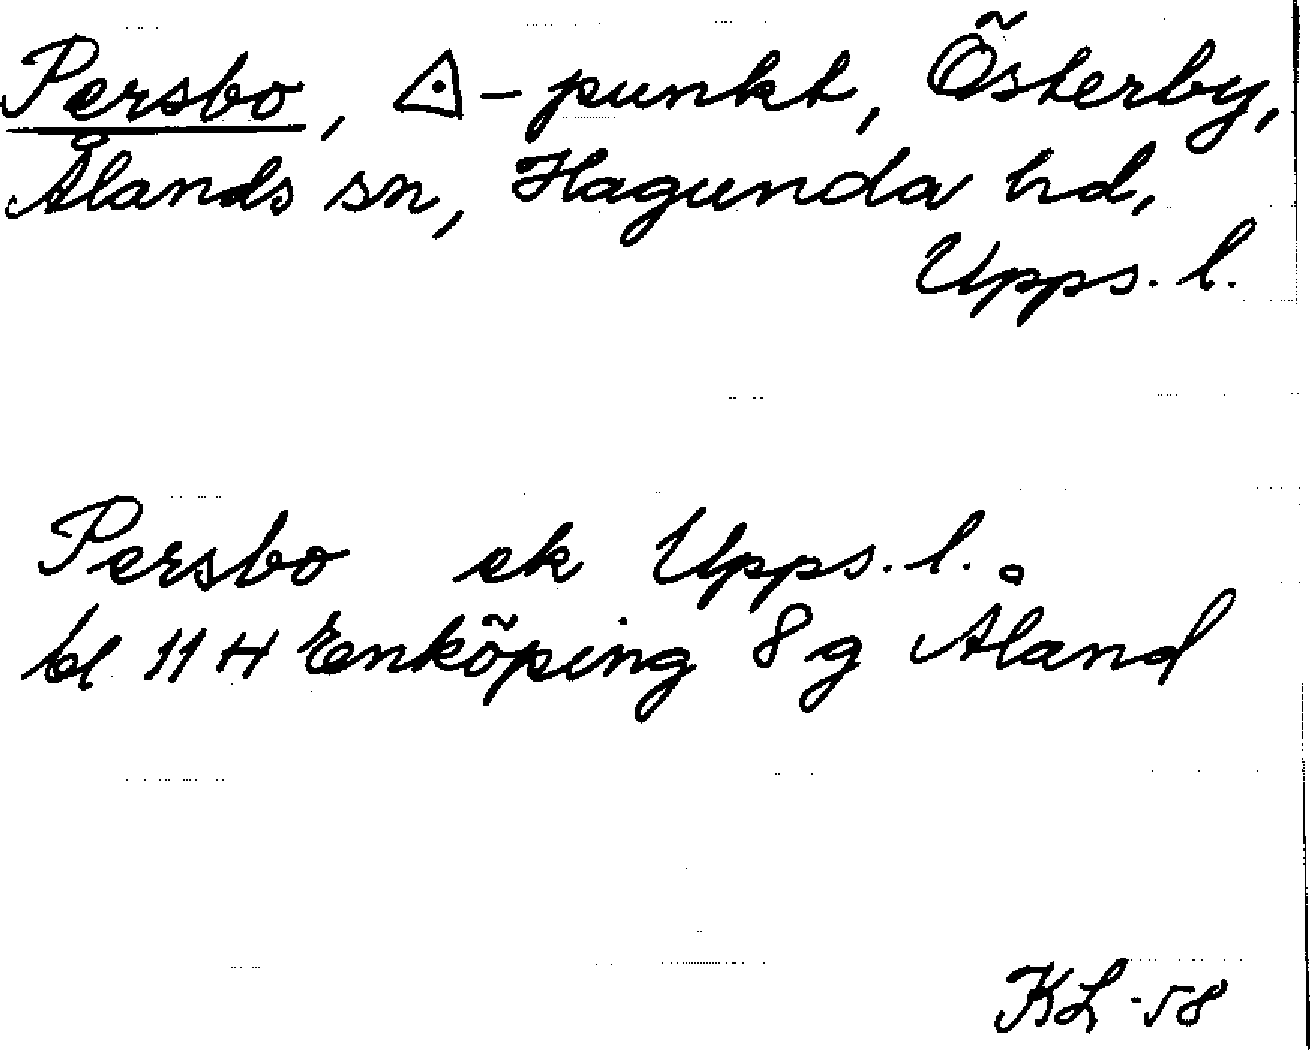 Persbo, △-punkt, Österby,
Ålands sn, Hagunda hd,
Upps. l.
Persbo ek Upps. l.
bl 11 H Enköping 8 g Åland
KL -58